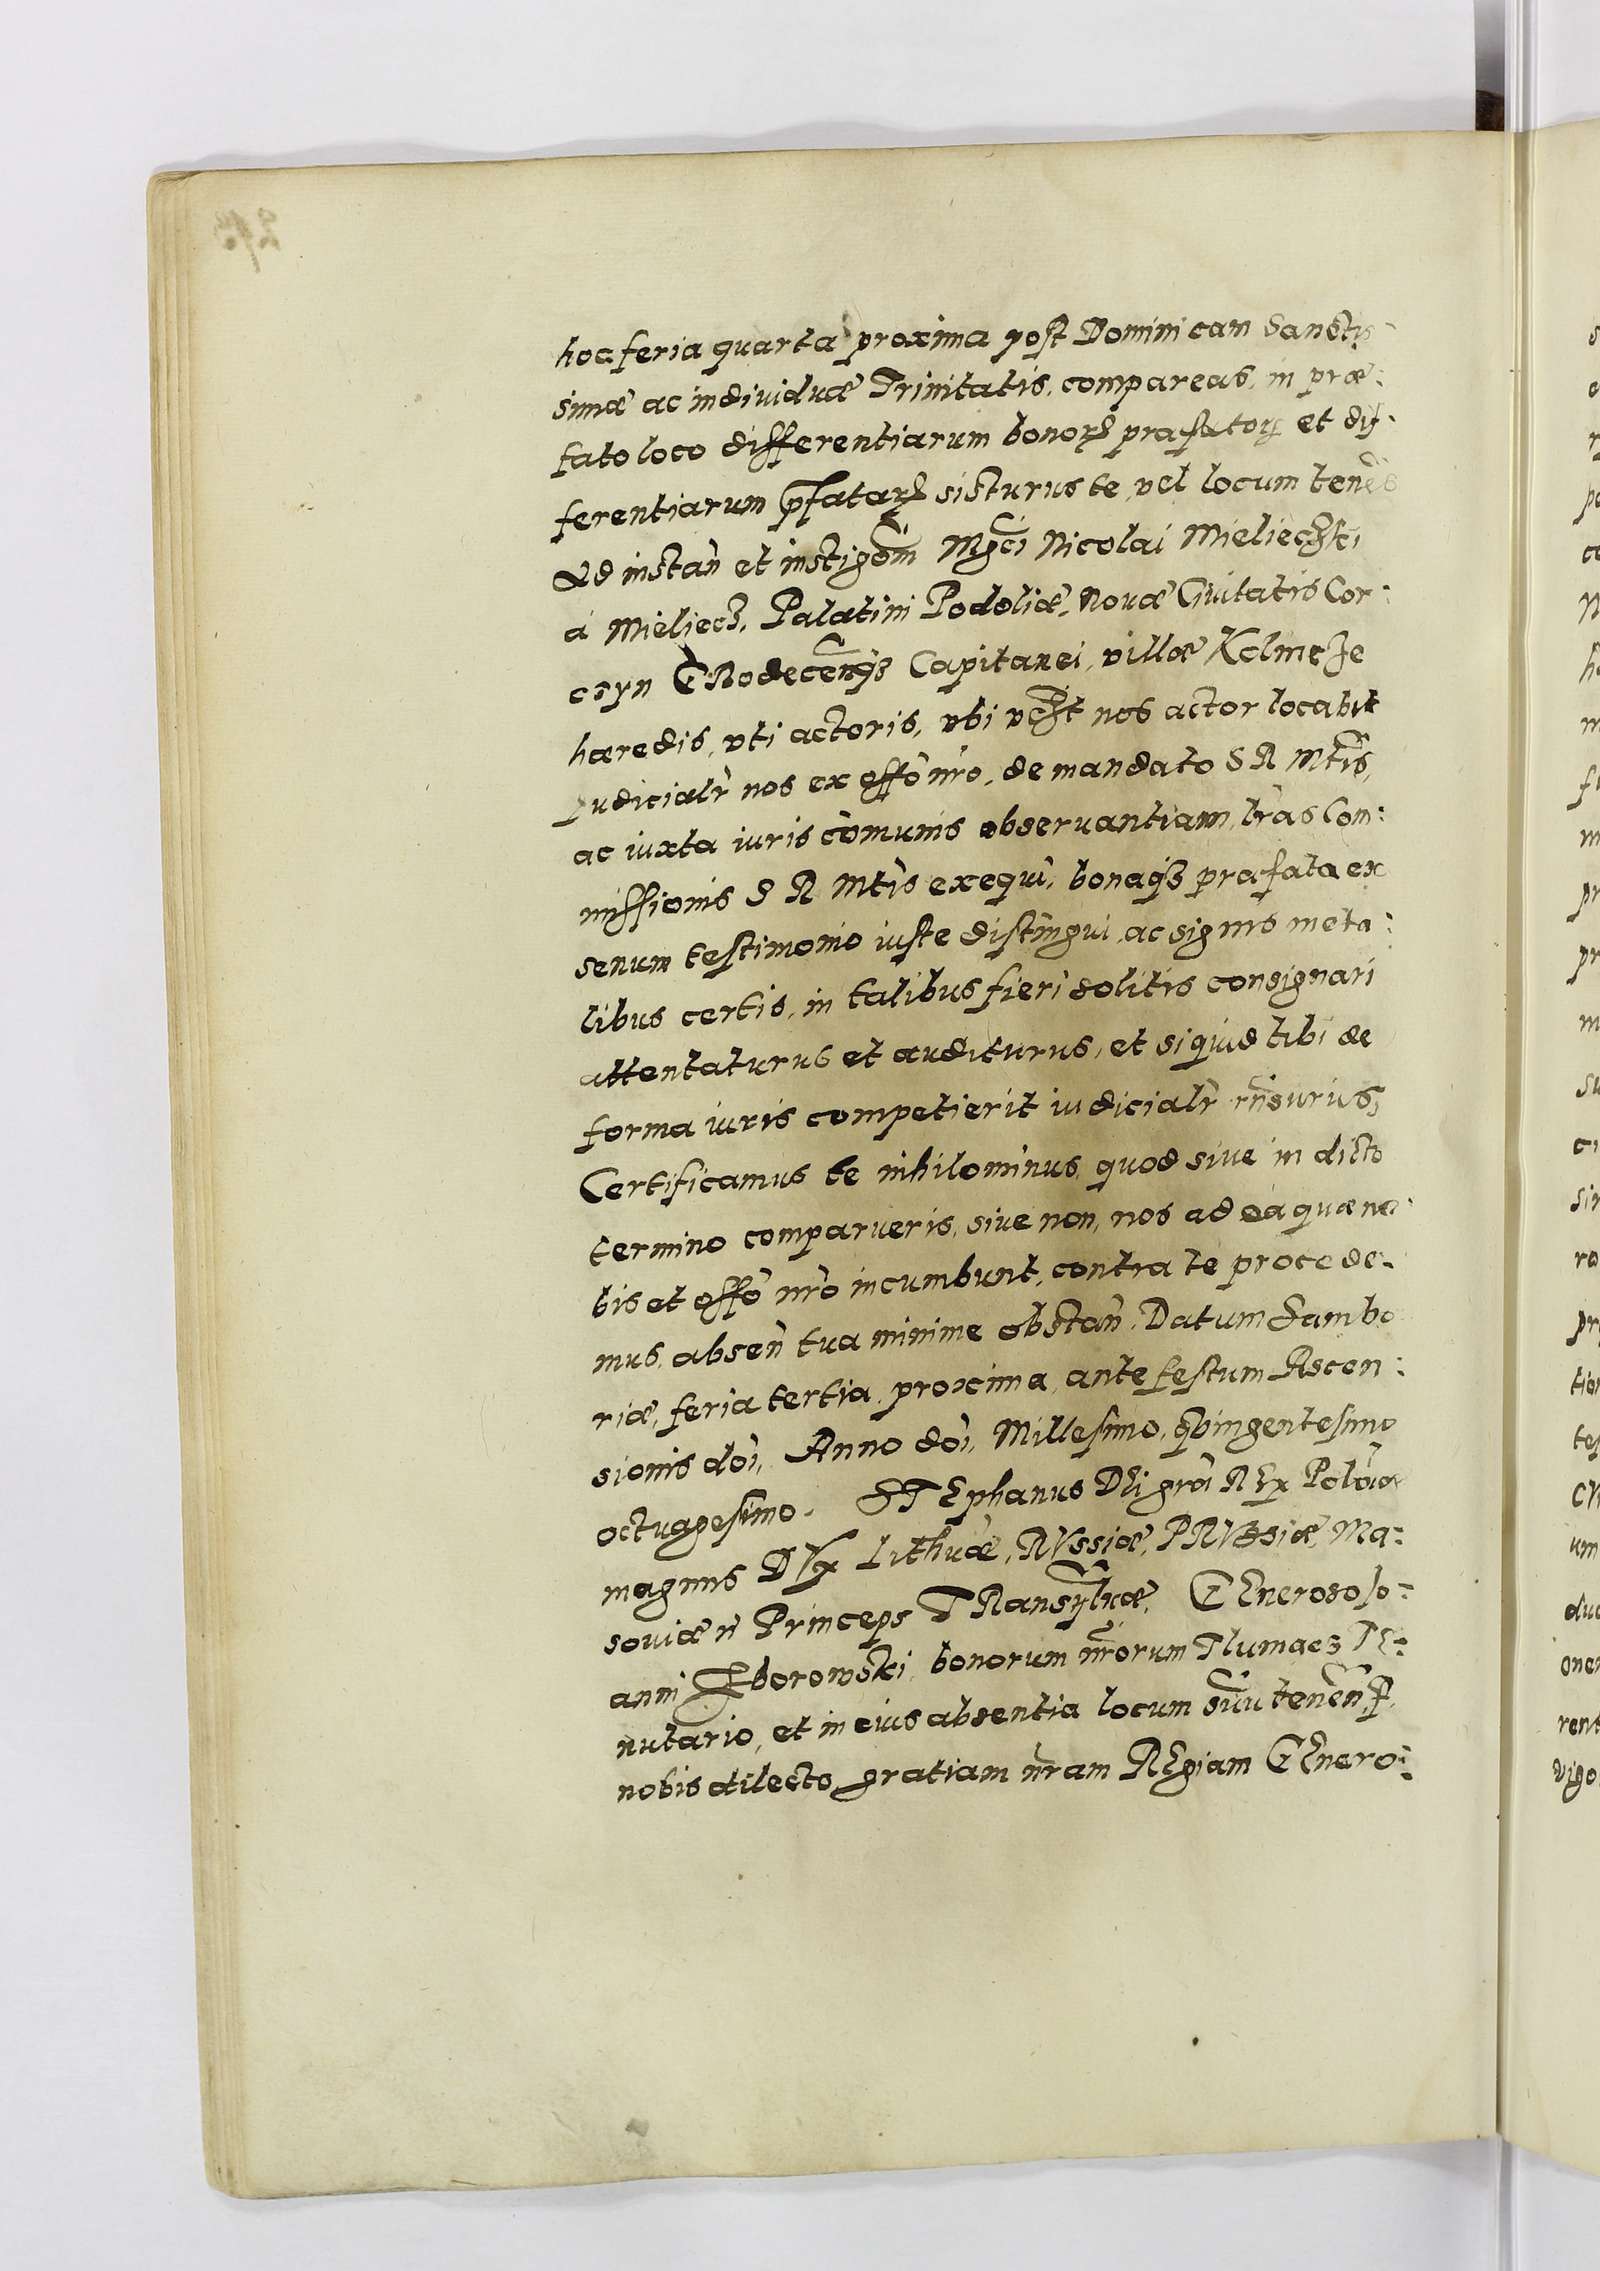 hoc feria quarta proxima post Dominicam Sanctis-
simæ ac individuæ Trinitatis, compareas, in præ:
fato loco differentiarum bonorꝝ præfatorꝝ et dif-
ferentiarum p̄fatarꝝ sisturus te, vel locum tenēs
Ad instan̄ et instigoēm Mgci Nicolai Mielieczki
á Mieliecz, Palatini Podoliæ, Nouæ Ciuitatis Cor:
czyn GRodecens̄ꝫ Capitanei, villæ
hæredis, vti actoris, vbi vꝫt nos actor locabit
Judicialr̄ nos ex offō nr̄o, de mandato S R Mtis,
ac iuxta iuris cōmunis obseruantiam, lr̄as Com:
missionis S R Mtis exequi, bonaqꝫ præfata ex
senum testimonio iuste distingui, ac signis meta:
libus certis, in talibus fieri solitis consignari
attentaturus et auditurus, et si quid tibi de
forma iuris competierit iudicialr̄ rn̄surus,
Certificamus te nihilominus, quod siue in dicto
termino comparueris, siue non, nos ad ea quæ no:
bis et offō nr̄o incumbunt, contra te procede-
mus, absen̄ tua minime obstan̄, Datum Sambo
riæ, feria tertia, proxima, ante festum Ascen:
sionis dōi, Anno dōi, Millesimo, qvingentesimo
octuagesimo. STEphanus DEi grā REx Polōiæ
magnus DVx Lithuāæ, RVssiæ, PRVssiæ, Ma:
souiæ n̄ Princeps TRansyluāæ, GEneroso Jo:
anni Zborowski, bonorum nr̄orum Tlumacz TE:
nutario, et in eius absentia locum suū tenen̄
nobis dilecto gratiam nr̄am REgiam GEnero: